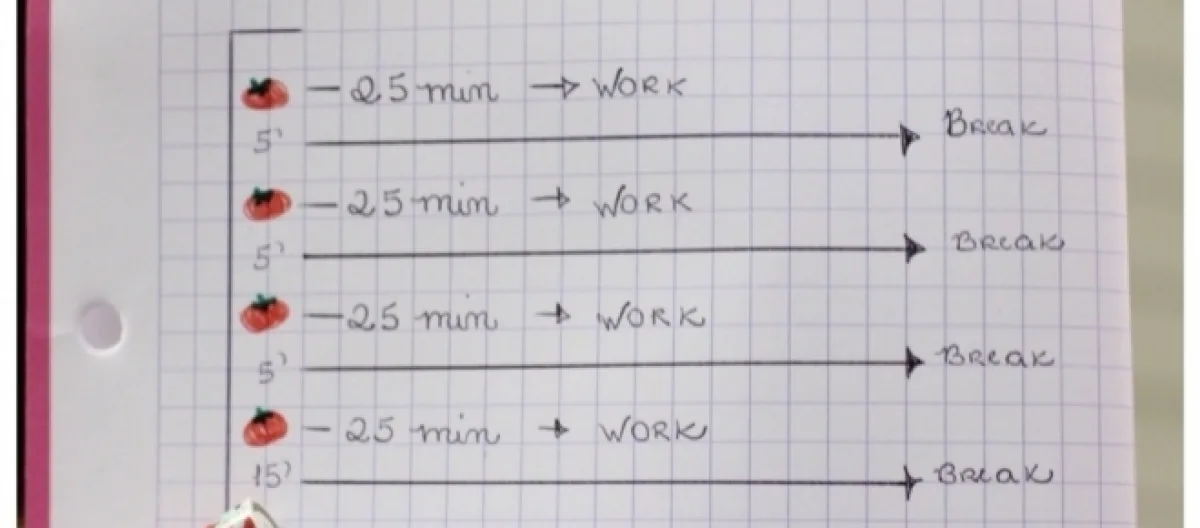 — 25 min → WORK
5' Break
— 25 min → WORK
5' Break
— 25 min → WORK
5' Break
— 25 min → WORK
15' Break